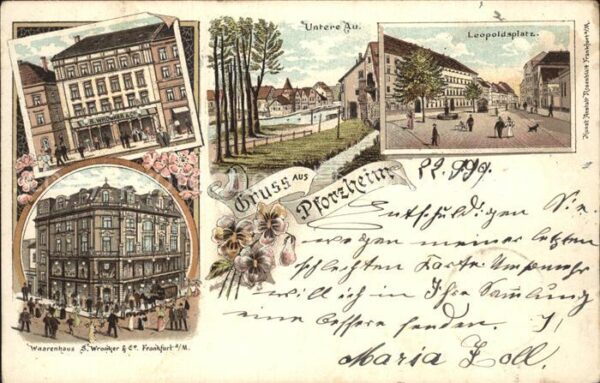 S. WRONKER & Co.
Untere Au.
Leopoldsplatz.
Kunst Anstalt Rosenblatt Frankfurt a/M.
Gruss aus
Pforzheim.
Waarenhaus S. Wronker & Co. Frankfurt a/M.
22.9.99.
Entschuldigen Sie,
wegen meiner letzten
schlechten Karte
will ich in Ihre Sammlung
eine bessere senden.
Maria Zoll.